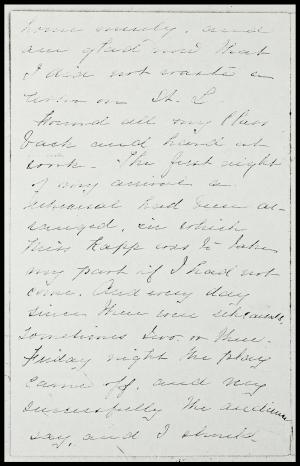 home surely, and
am glad now that
I did not waste a
on St. L.
Found all my Class
back and hard at
work. The first night
of my arrival a
rehearsal had been ar-
ranged, in which
Miss Kapp was to take
my part if I had not
come. And every day
since there were rehearsals
sometimes two or three.
Friday night the play
came off, and very
successfully the audience
say, and I should